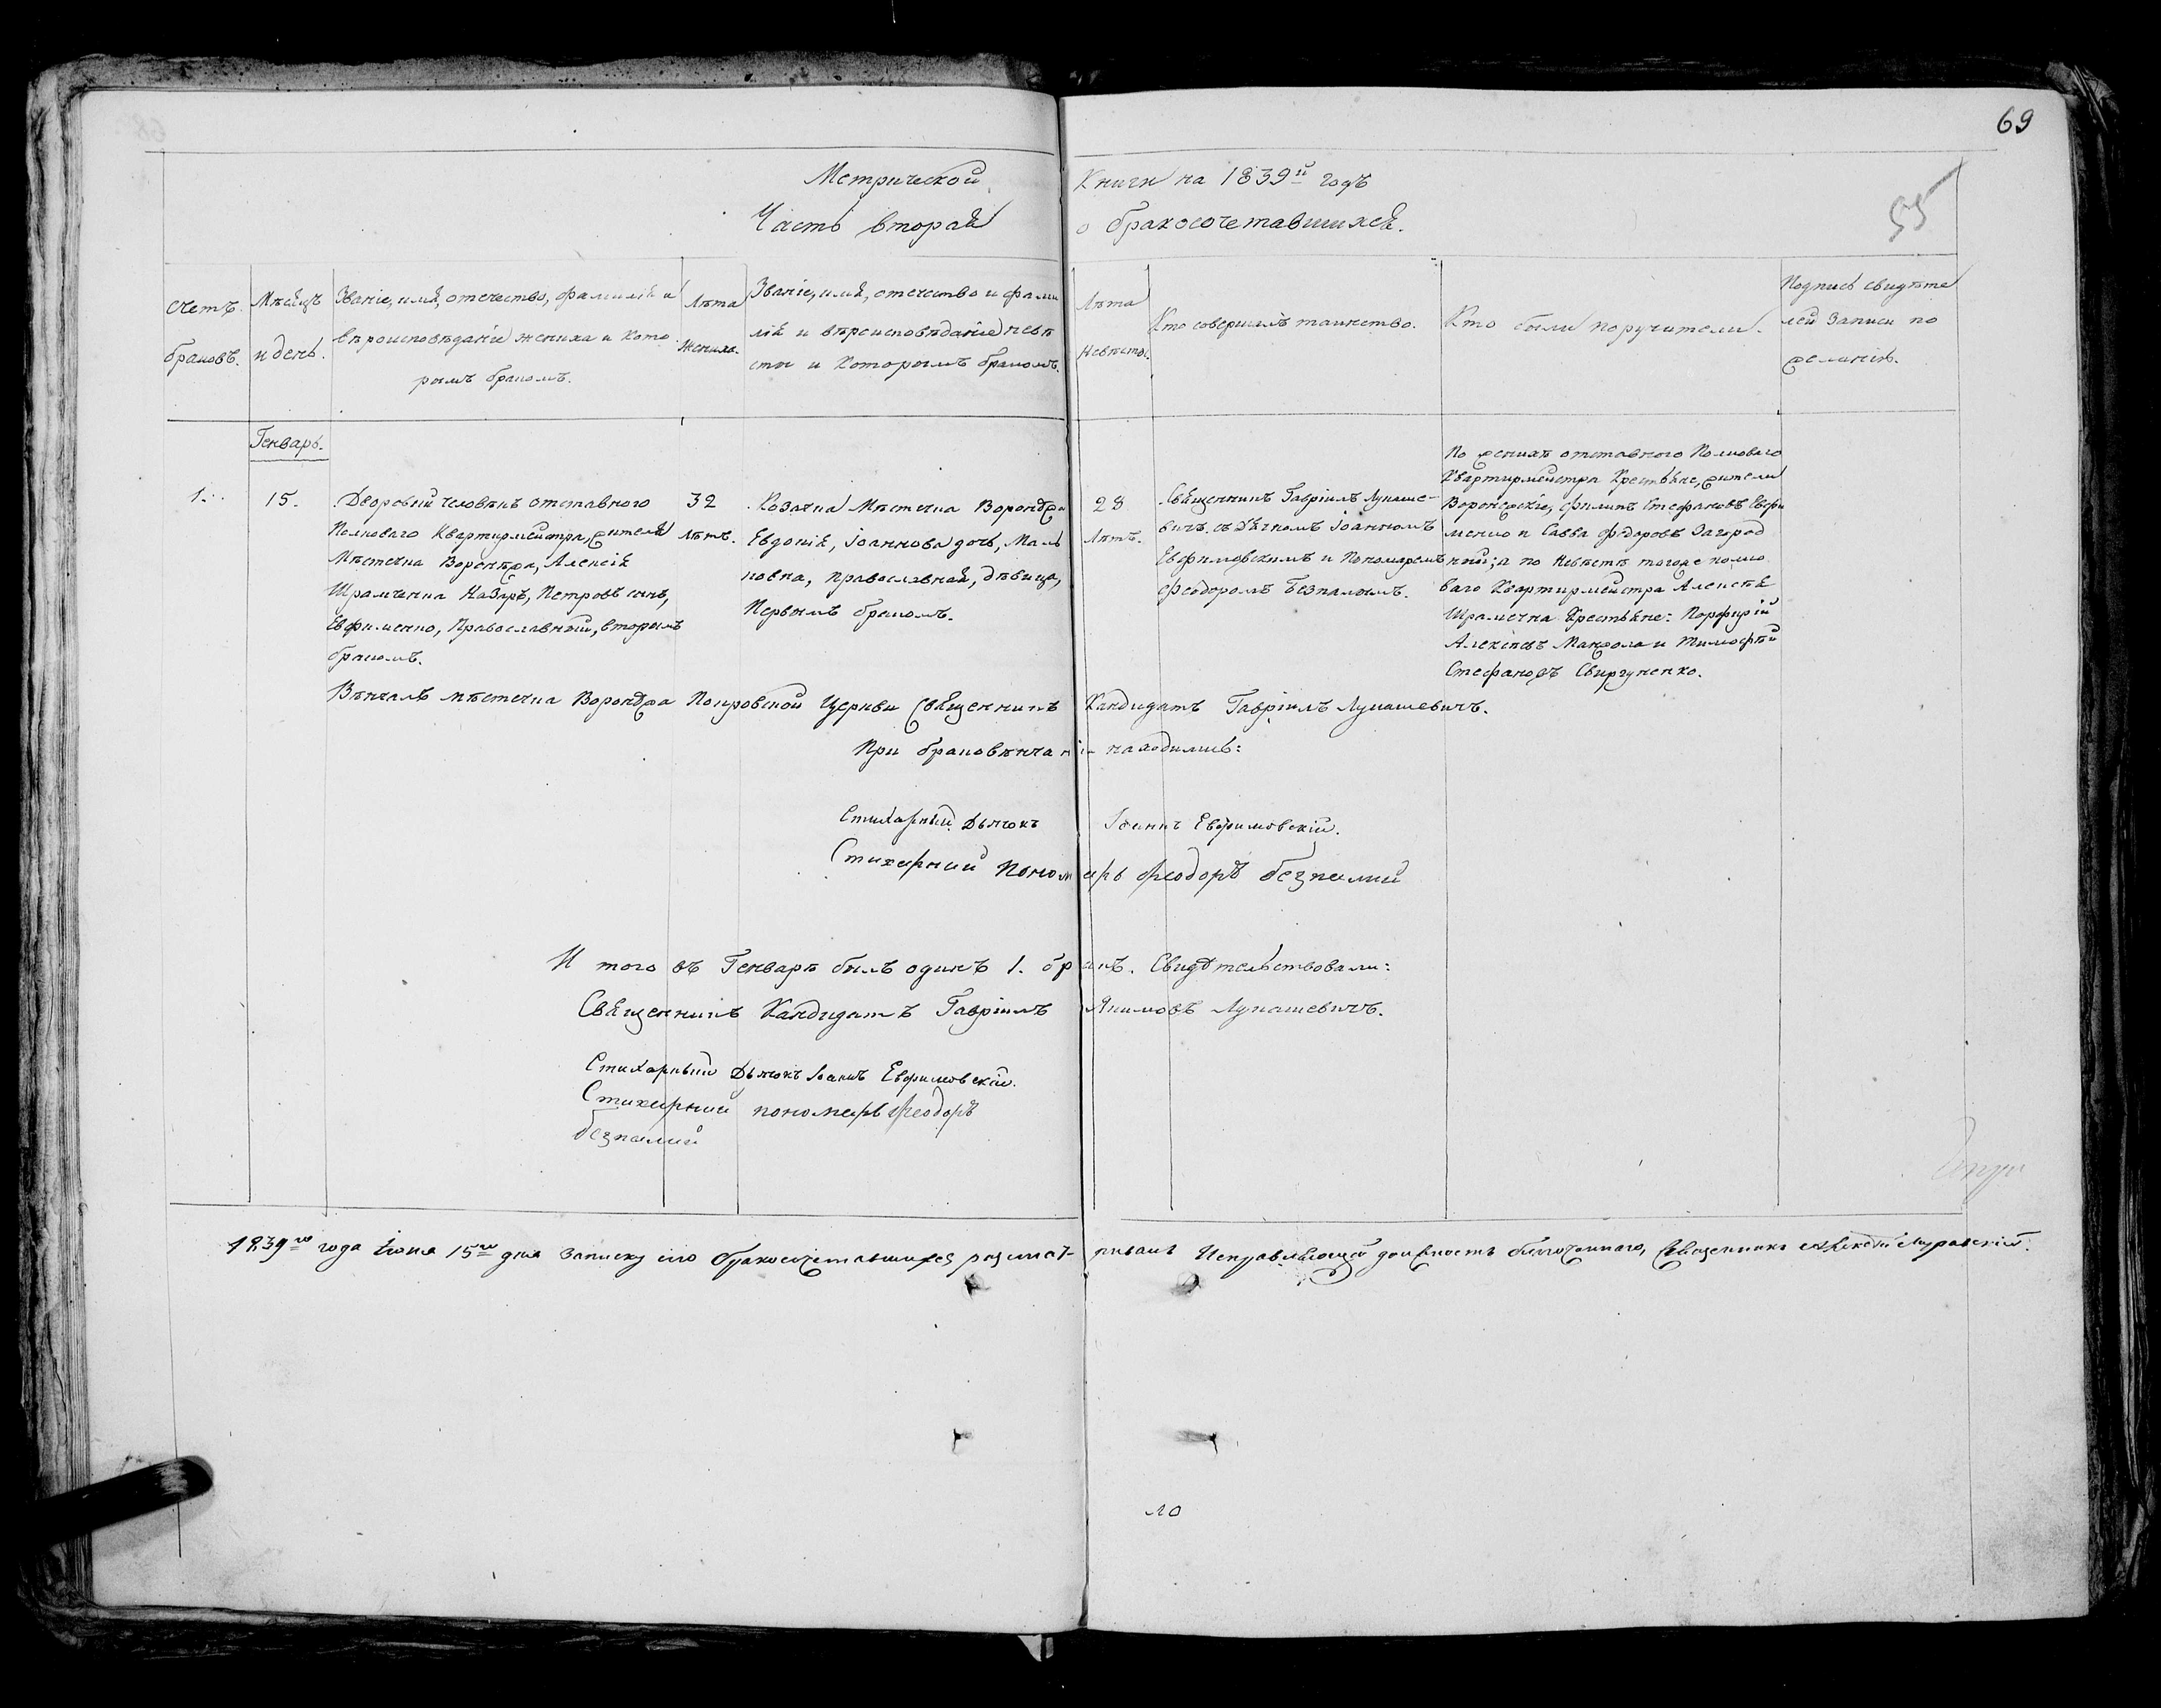 69
Метрической Книги на 1839й годъ
Часть вторая о бракосочетавшихся.
55
Счетъ браковъ.
Мѣсяцъ и день.
Званіе, имя, отечество, фамилія и
вѣроисповѣданіе жениха и кото
рымъ бракомъ.
Лѣта
жениха.
Званіе, имя, отечество и фами
лія и вѣроисповѣданіе невѣ
сты и которымъ бракомъ.
Лѣта
невѣсты.
Кто совершалъ таинство.
Кто были поручители.
Подпись свидѣте
лей записи по
желанію.
Генварь.
1.
15.
Дворовый человѣкъ отставного
Полковаго Квартирмейстра, жителя
Мѣстечка Воронѣжа, Алексія
Шрамченка Назаръ, Петровъ сынъ,
Евфименко, Православный, вторымъ
бракомъ.
32
лѣтъ.
Козачка Мѣстечка Воронѣжа
Евдокія, Іоаннова дочь, Маль
ковна, православная, дѣвица,
Первымъ бракомъ.
28
Лѣтъ.
Священникъ Гавріилъ Лукаше-
вичъ, съ Дячкомъ Іоанномъ
Евфимовскимъ и Пономаремъ
Феодоромъ Безпалымъ.
По женихѣ отставного Полковаго
Квартирмейстра Крестьяне, жители
Воронежскіе, Филипъ Стефановъ Евфи
менко и Савва Федоровъ Загород
ный; а по Невѣстѣ тогоже полко
ваго Квартирмейстра Алексѣя
Шрамченка Крестьяне: Порфирій
Алексѣевъ Манжола и Тимофѣй
Стефановъ Свиргуненко.
Вѣнчалъ мѣстечка Воронѣжа Покровской Церкви Священникъ Кандидатъ Гавріилъ Лукашевичъ.
При браковѣнчаніи находились:
Стихарный Дьячокъ Іоаннъ Евфимовскій.
Стихарный Пономарь Феодоръ Безпалый
И того въ Генварѣ былъ одинъ 1. бракъ. Свидѣтельствовали:
Священникъ Кандидатъ Гавріилъ Якимовъ Лукашевичъ.
Стихарный Дьячокъ Іоаннъ Евфимовскій.
Стихарный пономарь Феодоръ
Безпалый
1839го года Іюня 15го дня записку сію бракосочетавшихся разсматривалъ Исправляющій должность благочиннаго, Священникъ Алексѣй Муравскій.